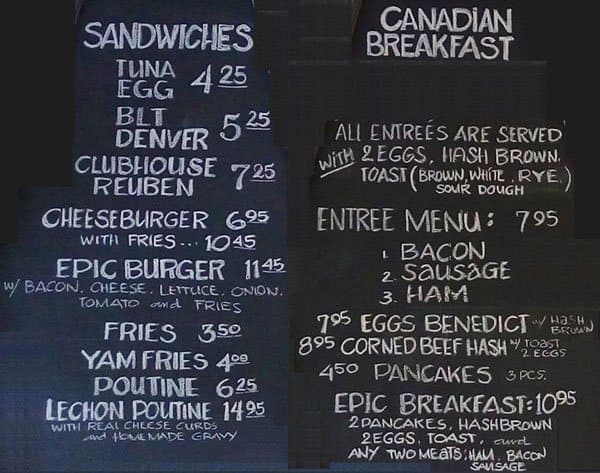 SANDWICHES
TUNA
EGG 4 25
BLT
DENVER 5 25
CLUBHOUSE
REUBEN 7 25
CHEESEBURGER 6 95
WITH FRIES... 10 45
EPIC BURGER 11 45
W/ BACON, CHEESE, LETTUCE, ONION,
TOMATO and FRIES
FRIES 3 50
YAM FRIES 4 00
POUTINE 6 25
LECHON POUTINE 14 95
WITH REAL CHEESE CURDS
and HOMEMADE GRAVY
CANADIAN
BREAKFAST
ALL ENTREÉS ARE SERVED
WITH 2 EGGS, HASH BROWN,
TOAST (BROWN, WHITE, RYE,)
SOUR DOUGH
ENTREE MENU: 7 95
1. BACON
2. SAUSAGE
3. HAM
7 95 EGGS BENEDICT W/ HASH
BROWN
8 95 CORNED BEEF HASH W/ TOAST
2 EGGS
4 50 PANCAKES 3 PCS.
EPIC BREAKFAST: 10 95
2 PANCAKES, HASHBROWN
2 EGGS, TOAST, and
ANY TWO MEATS: HAM, BACON
SAUSAGE